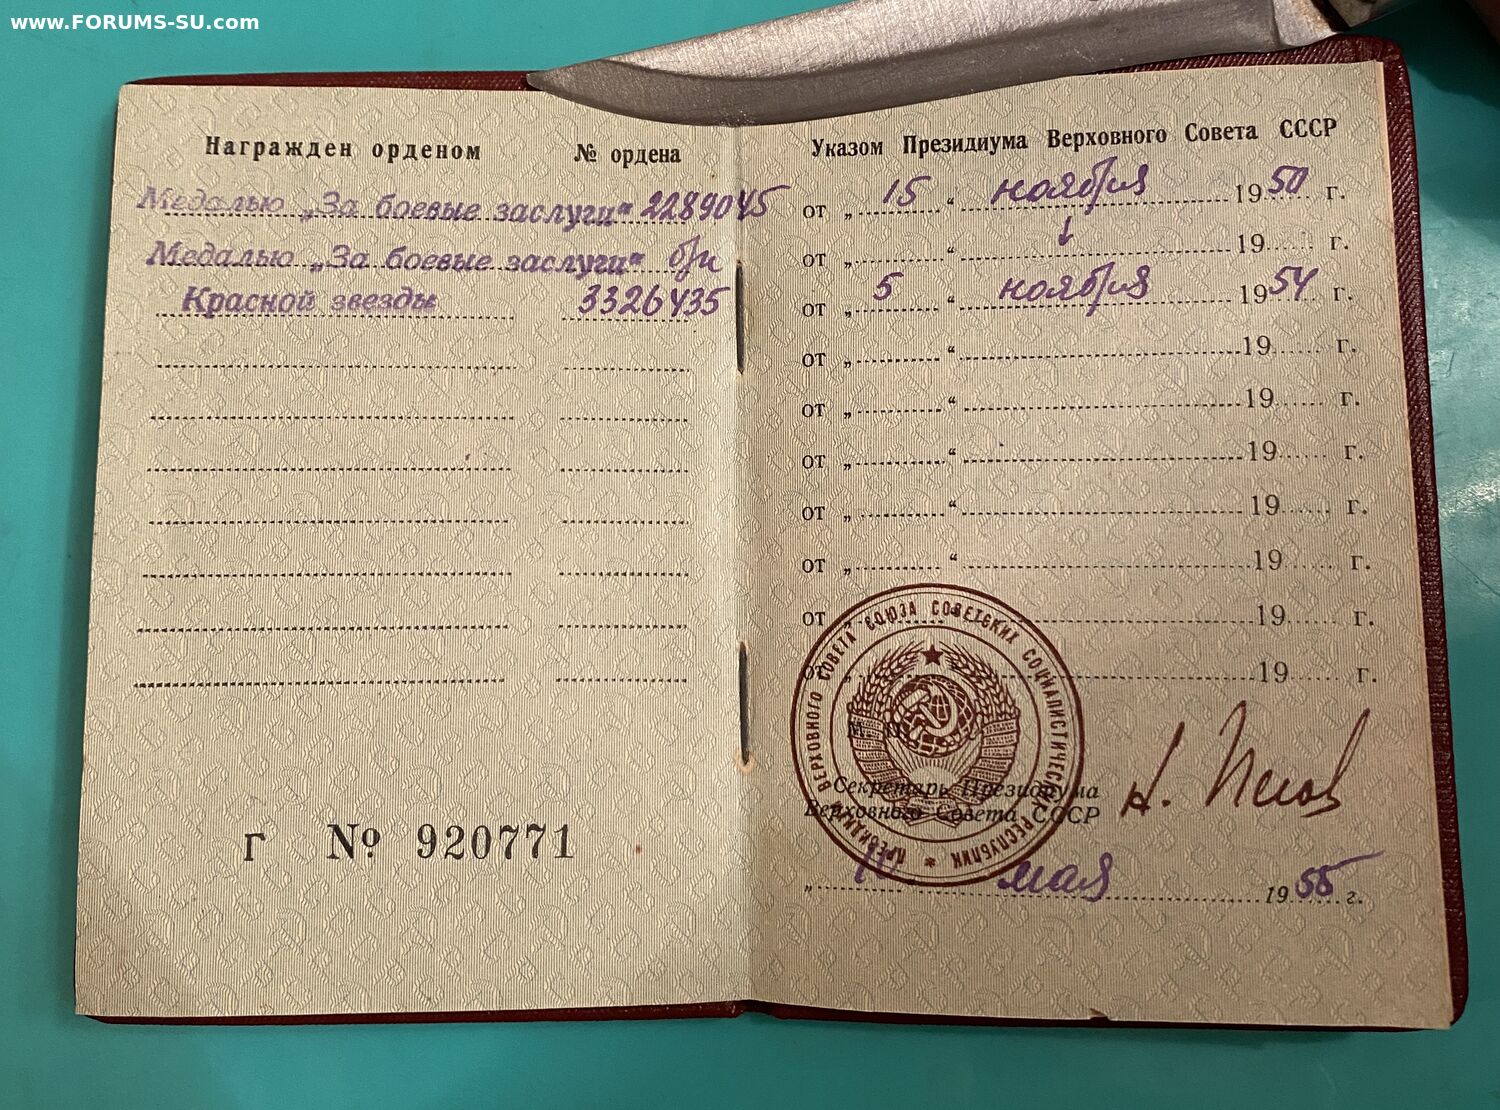 www.FORUMS-SU.com
Награжден орденом № ордена
Медалью „За боевые заслуги“ 2289045
Медалью „За боевые заслуги“ б/н
Красной звезды 3326435
Г № 920771
Указом Президиума Верховного Совета СССР
от „ 15 “ ноября 1950 г.
от „ “ 19 г.
от „ 5 “ ноября 1954 г.
от „ “ 19 г.
от „ “ 19 г.
от „ “ 19 г.
от „ “ 19 г.
от „ “ 19 г.
от „ “ 19 г.
от „ “ 19 г.
М. П.
ПРЕЗИДИУМ ВЕРХОВНОГО СОВЕТА СОЮЗА СОВЕТСКИХ СОЦИАЛИСТИЧЕСКИХ РЕСПУБЛИК *
Секретарь Президиума
Верховного Совета СССР
Н. Пегов
„ “ мая 1955 г.